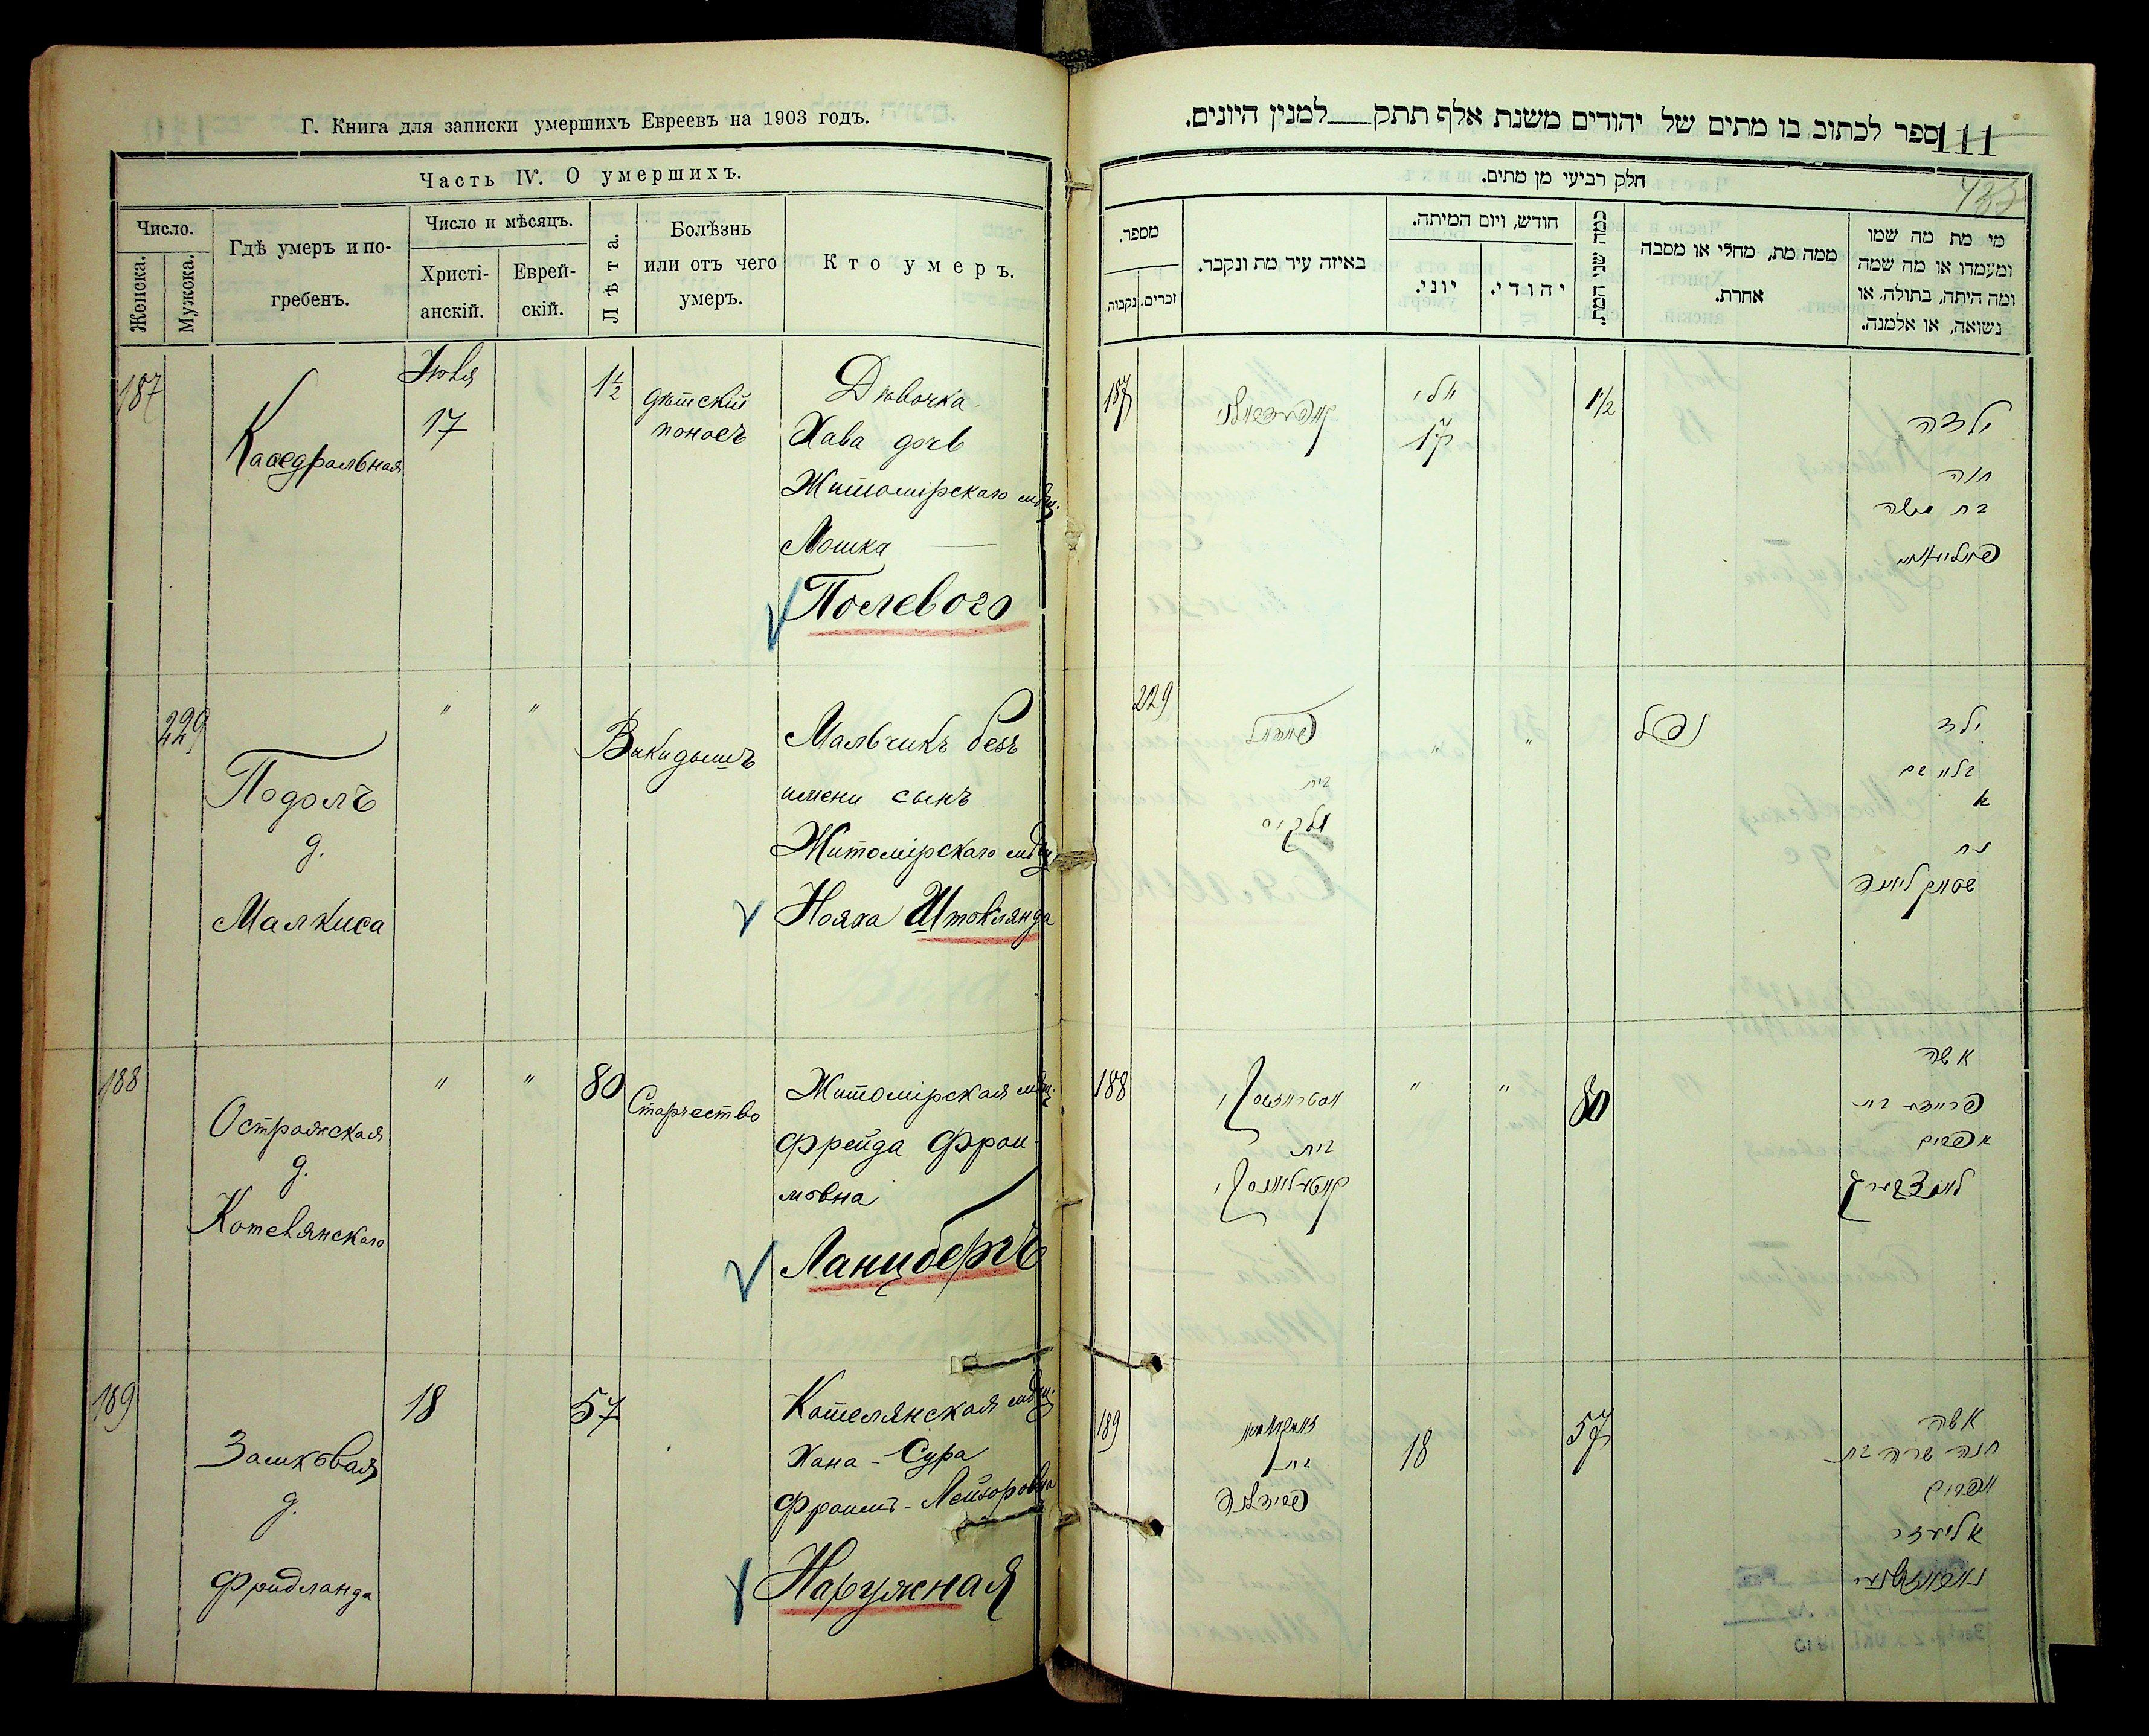 Г. Книга для записки умершихъ Евреевъ на 1903 годъ.
Часть IV. О умершихъ.
Число.
Женска.
Мужска.
Гдѣ умеръ и по-
гребенъ.
Число и мѣсяцъ.
Христі-
анскій.
Еврей-
скій.
Лѣта.
Болѣзнь
или отъ чего
умеръ.
Кто умеръ.
187
Каѳедральная
Іюля
17
1½
дѣтскій
поносъ
Дѣвочка
Хава дочь
Житомірскаго мѣщ.
Мошка
Полевого
229
Подолъ
д.
Малкиса
" "
Выкидышъ
Мальчикъ безъ
имени сынъ
Житомірскаго мѣщ.
Нояха Штоклянда
188
Острожская
д.
Котелянскаго
" "
80
Старчество
Житомірская мѣщ.
Фрейда Фрои-
мовна
Ланцбергъ
189
Замковая
д.
Фридланда
18
57
Котелянская мѣщ.
Хана-Сура
Фроимъ-Лейзоровна
Наружная
ספר לכתוב בו מתים של יהודים משנת אלף תתק למנין היונים.
111
חלק רביעי מן מתים.
מספר.
זכרים.
נקבות
באיזה עיר מת ונקבר.
חודש, ויום המיתה.
יוני.
יהודי.
כמה שני המת.
ממה מת, מחלי או מסבה
אחרת.
מי מת מה שמו
ומעמדו או מה שמה
ומה היתה, בתולה, או
נשואה, או אלמנה.
187
יולי
17
1½
ילדה
חוה
בת משה
229
" "
נפל
ילד
בלי שם
188
בית
" "
80
אשה
פריידא בת
אפרים
לאנצבערג
189
בית
18
57
אשה
חנה שרה בת
אפרים
אליעזר